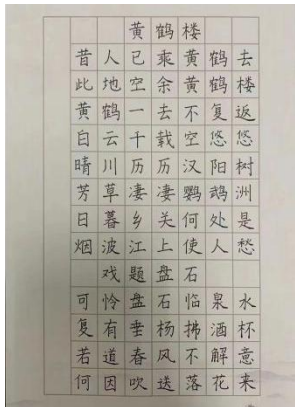 黄鹤楼
昔人已乘黄鹤去
此地空余黄鹤楼
黄鹤一去不复返
白云千载空悠悠
晴川历历汉阳树
芳草凄凄鹦鹉洲
日暮乡关何处是
烟波江上使人愁
戏题盘石
可怜盘石临泉水
复有垂杨拂酒杯
若道春风不解意
何因吹送落花来